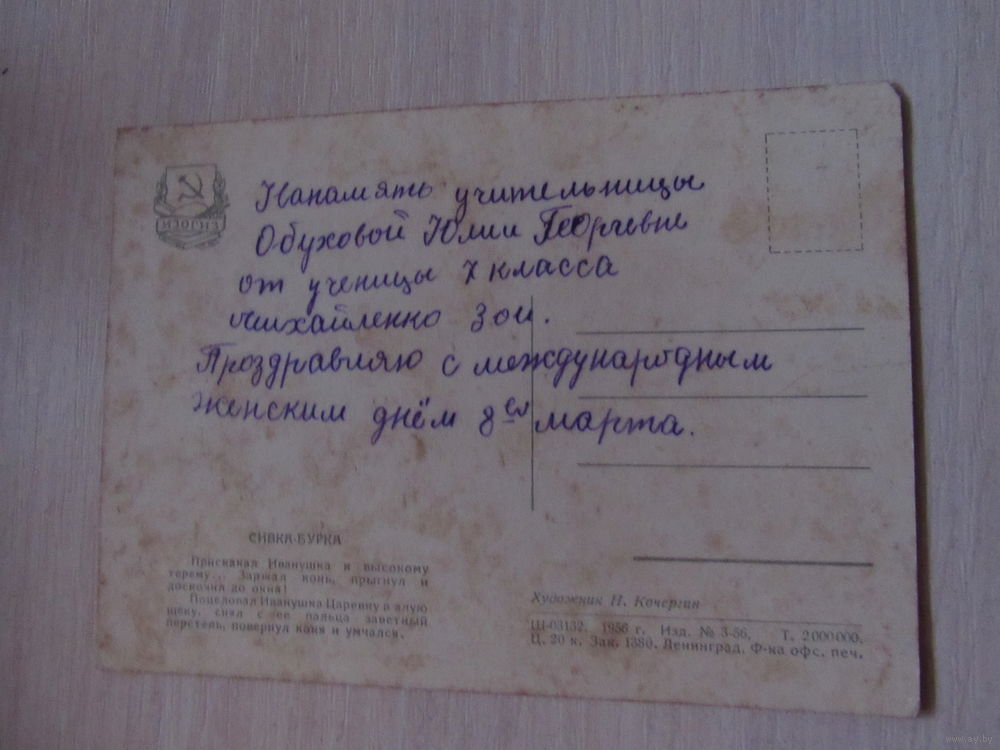 ИЗОГИЗ
Напамять учительницы
Обуховой Юлии Георгевне
от ученицы 7 класса
Михайленко Зои.
Проздравляю с международным
женским днём 8ев марта.
СИВКА-БУРКА
Прискакал Иванушка к высокому
терему... Заржал конь, прыгнул и
доскочил до окна!
Поцеловал Иванушка Царевну в алую
щеку, снял с ее пальца заветный
перстень, повернул коня и умчался.
Художник Н. Кочергин
Ш-03132. 1956 г. Изд. № 3-56. Т. 2 000 000.
Ц. 20 к. Зак. 1380. Ленинград. Ф-ка офс. печ.
www.ay.by